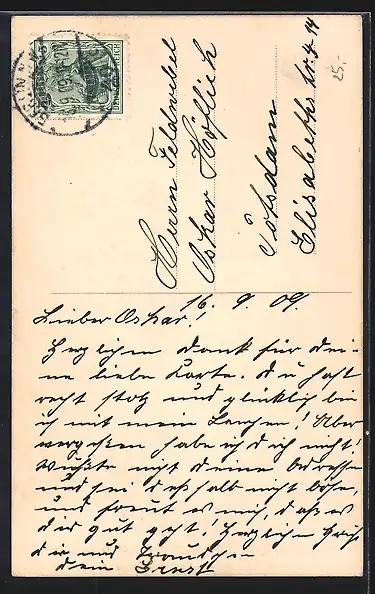 Herrn Feldwebel
Oskar Höflich
Potsdam
Elisabethstr. 4 14
25,-
16. 9. 09.
Lieber Oskar!
Herzlichen Dank für dei-
ne liebe Karte. du hast
recht stolz und glücklich bin
ich mit mein! Aber
vergessen habe ich dich nicht!
Wußte nicht deine Adresse
und sei deßhalb nicht böse,
und freut es mich, daß es
dir gut geht! Herzlichen Gruß
dir und
dein Ernst